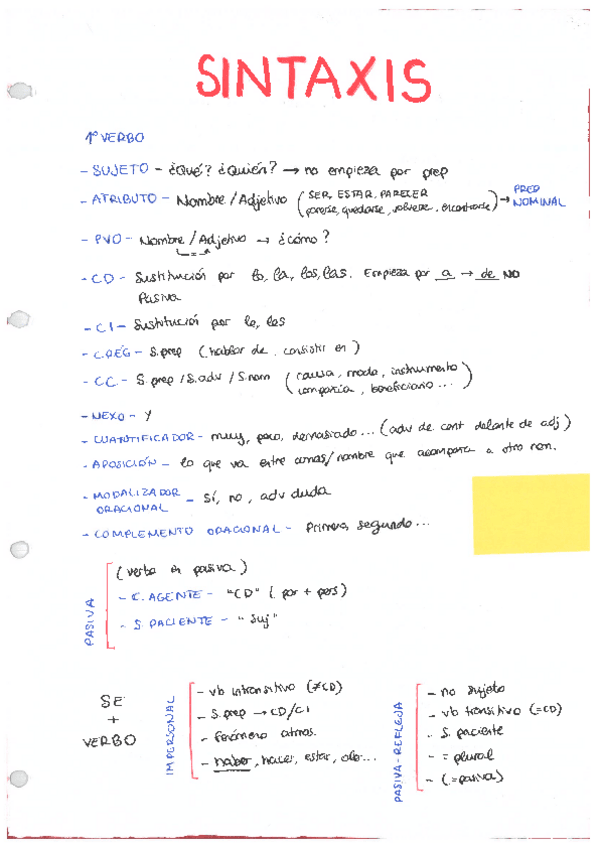 SINTAXIS
1º VERBO
- SUJETO - ¿Qué? ¿Quién? → no empieza por prep
- ATRIBUTO - Nombre / Adjetivo (SER, ESTAR, PARECER → PRED NOMINAL
ponerse, quedarse, volverse, encontrarse)
- PVO - Nombre / Adjetivo → ¿cómo?
- CD - Sustitución por lo, la, los, las. Empieza por a → de NO
Pasiva
- CI - Sustitución por le, les
- C.REG - S.prep (hablar de, consistir en)
- CC - S.prep / S.adv / S.nom (causa, modo, instrumento
compañía, beneficiario...)
- NEXO - y
- CUANTIFICADOR - muy, poco, demasiado... (adv de cant delante de adj)
- APOSICIÓN - lo que va entre comas/nombre que acompaña a otro nom.
- MODALIZADOR ORACIONAL - sí, no, adv duda
- COMPLEMENTO ORACIONAL - Primero, segundo...
PASIVA
(verbo en pasiva)
- C. AGENTE - "CD" (por + pers)
- S. PACIENTE - "suj"
SE
+
VERBO
IMPERSONAL
- vb intransitivo (≠CD)
- S.prep → CD/CI
- fenómeno atmos.
- haber, hacer, estar, oler...
PASIVA-REFLEJA
- no sujeto
- vb transitivo (=CD)
- S. paciente
- = plural
- (=pasiva)